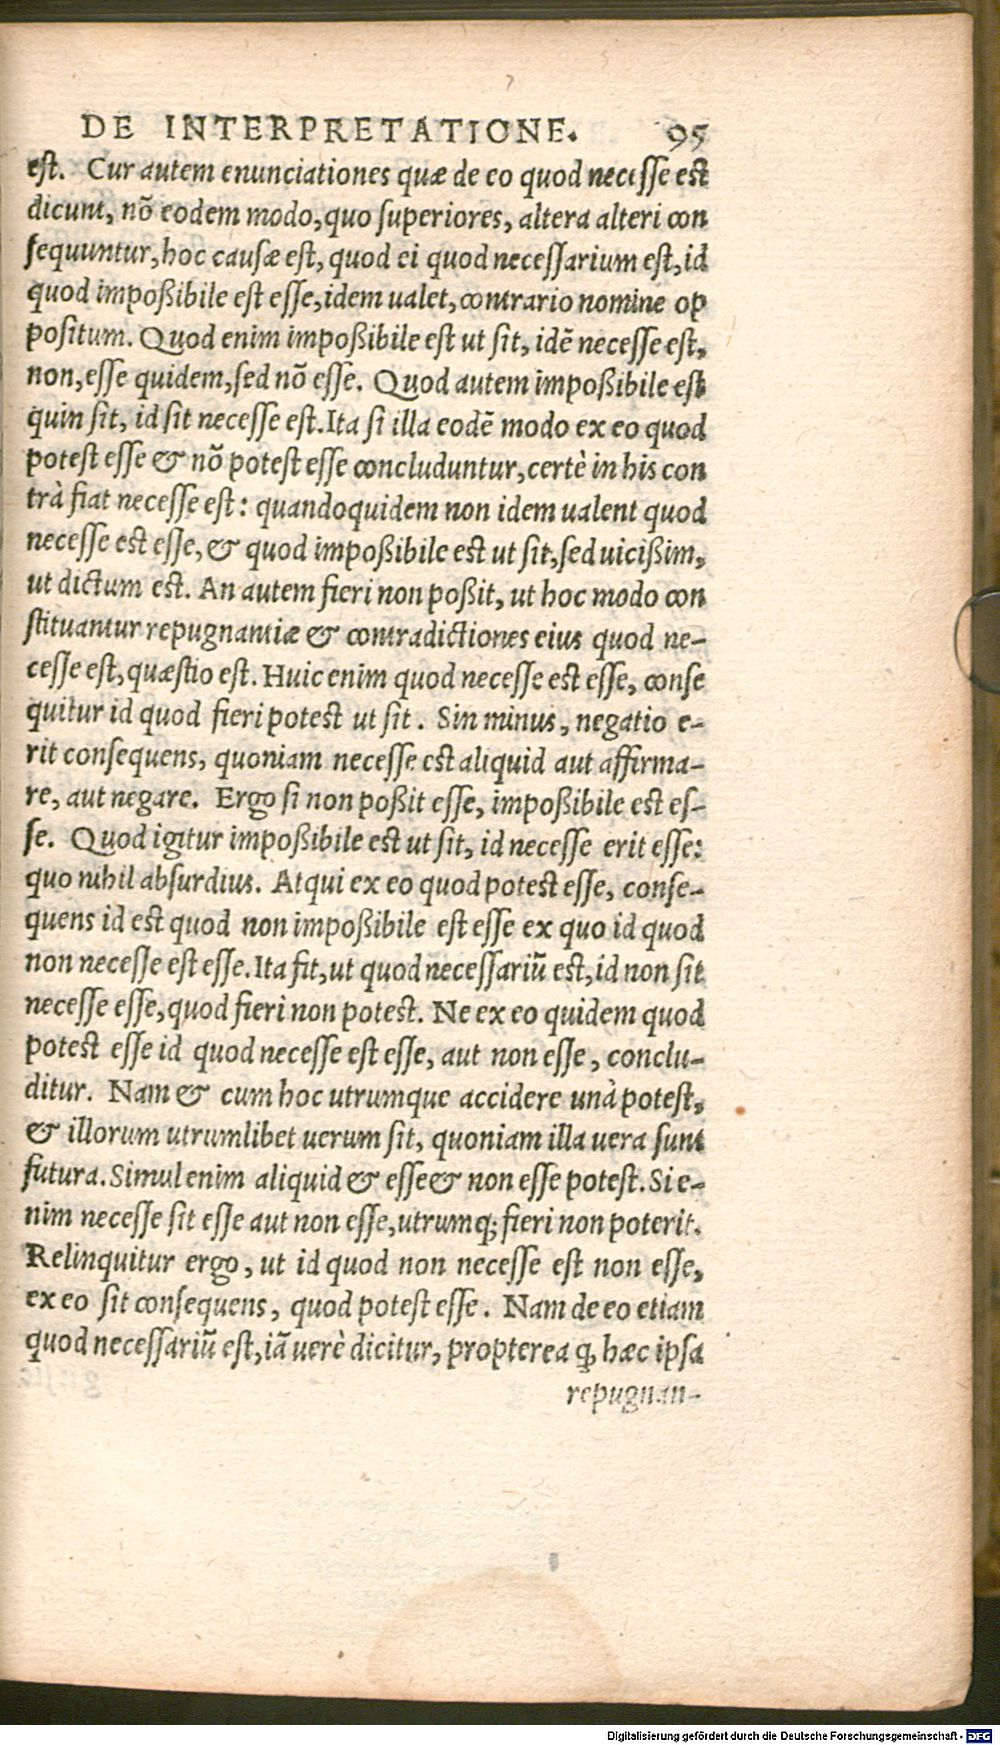 DE INTERPRETATIONE. 95
est. Cur autem enunciationes quæ de eo quod necesse est
dicunt, nõ eodem modo, quo superiores, altera alteri con
sequuntur, hoc causæ est, quod ei quod necessarium est, id
quod impoßibile est esse, idem ualet, contrario nomine op
positum. Quod enim impoßibile est ut sit, idẽ necesse est,
non, esse quidem, sed nõ esse. Quod autem impoßibile est
quin sit, id sit necesse est. Ita si illa eodẽ modo ex eo quod
potest esse & nõ potest esse concluduntur, certè in his con
trà fiat necesse est: quandoquidem non idem ualent quod
necesse est esse, & quod impoßibile est ut sit, sed uicißim,
ut dictum est. An autem fieri non poßit, ut hoc modo con
stituantur repugnantiæ & contradictiones eius quod ne-
cesse est, quæstio est. Huic enim quod necesse est esse, conse
quitur id quod fieri potest ut sit. Sin minus, negatio e-
rit consequens, quoniam necesse est aliquid aut affirma-
re, aut negare. Ergo si non poßit esse, impoßibile est es-
se. Quod igitur impoßibile est ut sit, id necesse erit esse:
quo nihil absurdius. Atqui ex eo quod potest esse, conse-
quens id est quod non impoßibile est esse ex quo id quod
non necesse est esse. Ita fit, ut quod necessariũ est, id non sit
necesse esse, quod fieri non potest. Ne ex eo quidem quod
potest esse id quod necesse est esse, aut non esse, conclu-
ditur. Nam & cum hoc utrumque accidere unà potest,
& illorum utrumlibet uerum sit, quoniam illa uera sunt
futura. Simul enim aliquid & esse & non esse potest. Si e-
nim necesse sit esse aut non esse, utrumq; fieri non poterit.
Relinquitur ergo, ut id quod non necesse est non esse,
ex eo sit consequens, quod potest esse. Nam de eo etiam
quod necessariũ est, iã uerè dicitur, propterea q, hæc ipsa
repugnan-
Digitalisierung gefördert durch die Deutsche Forschungsgemeinschaft - DFG